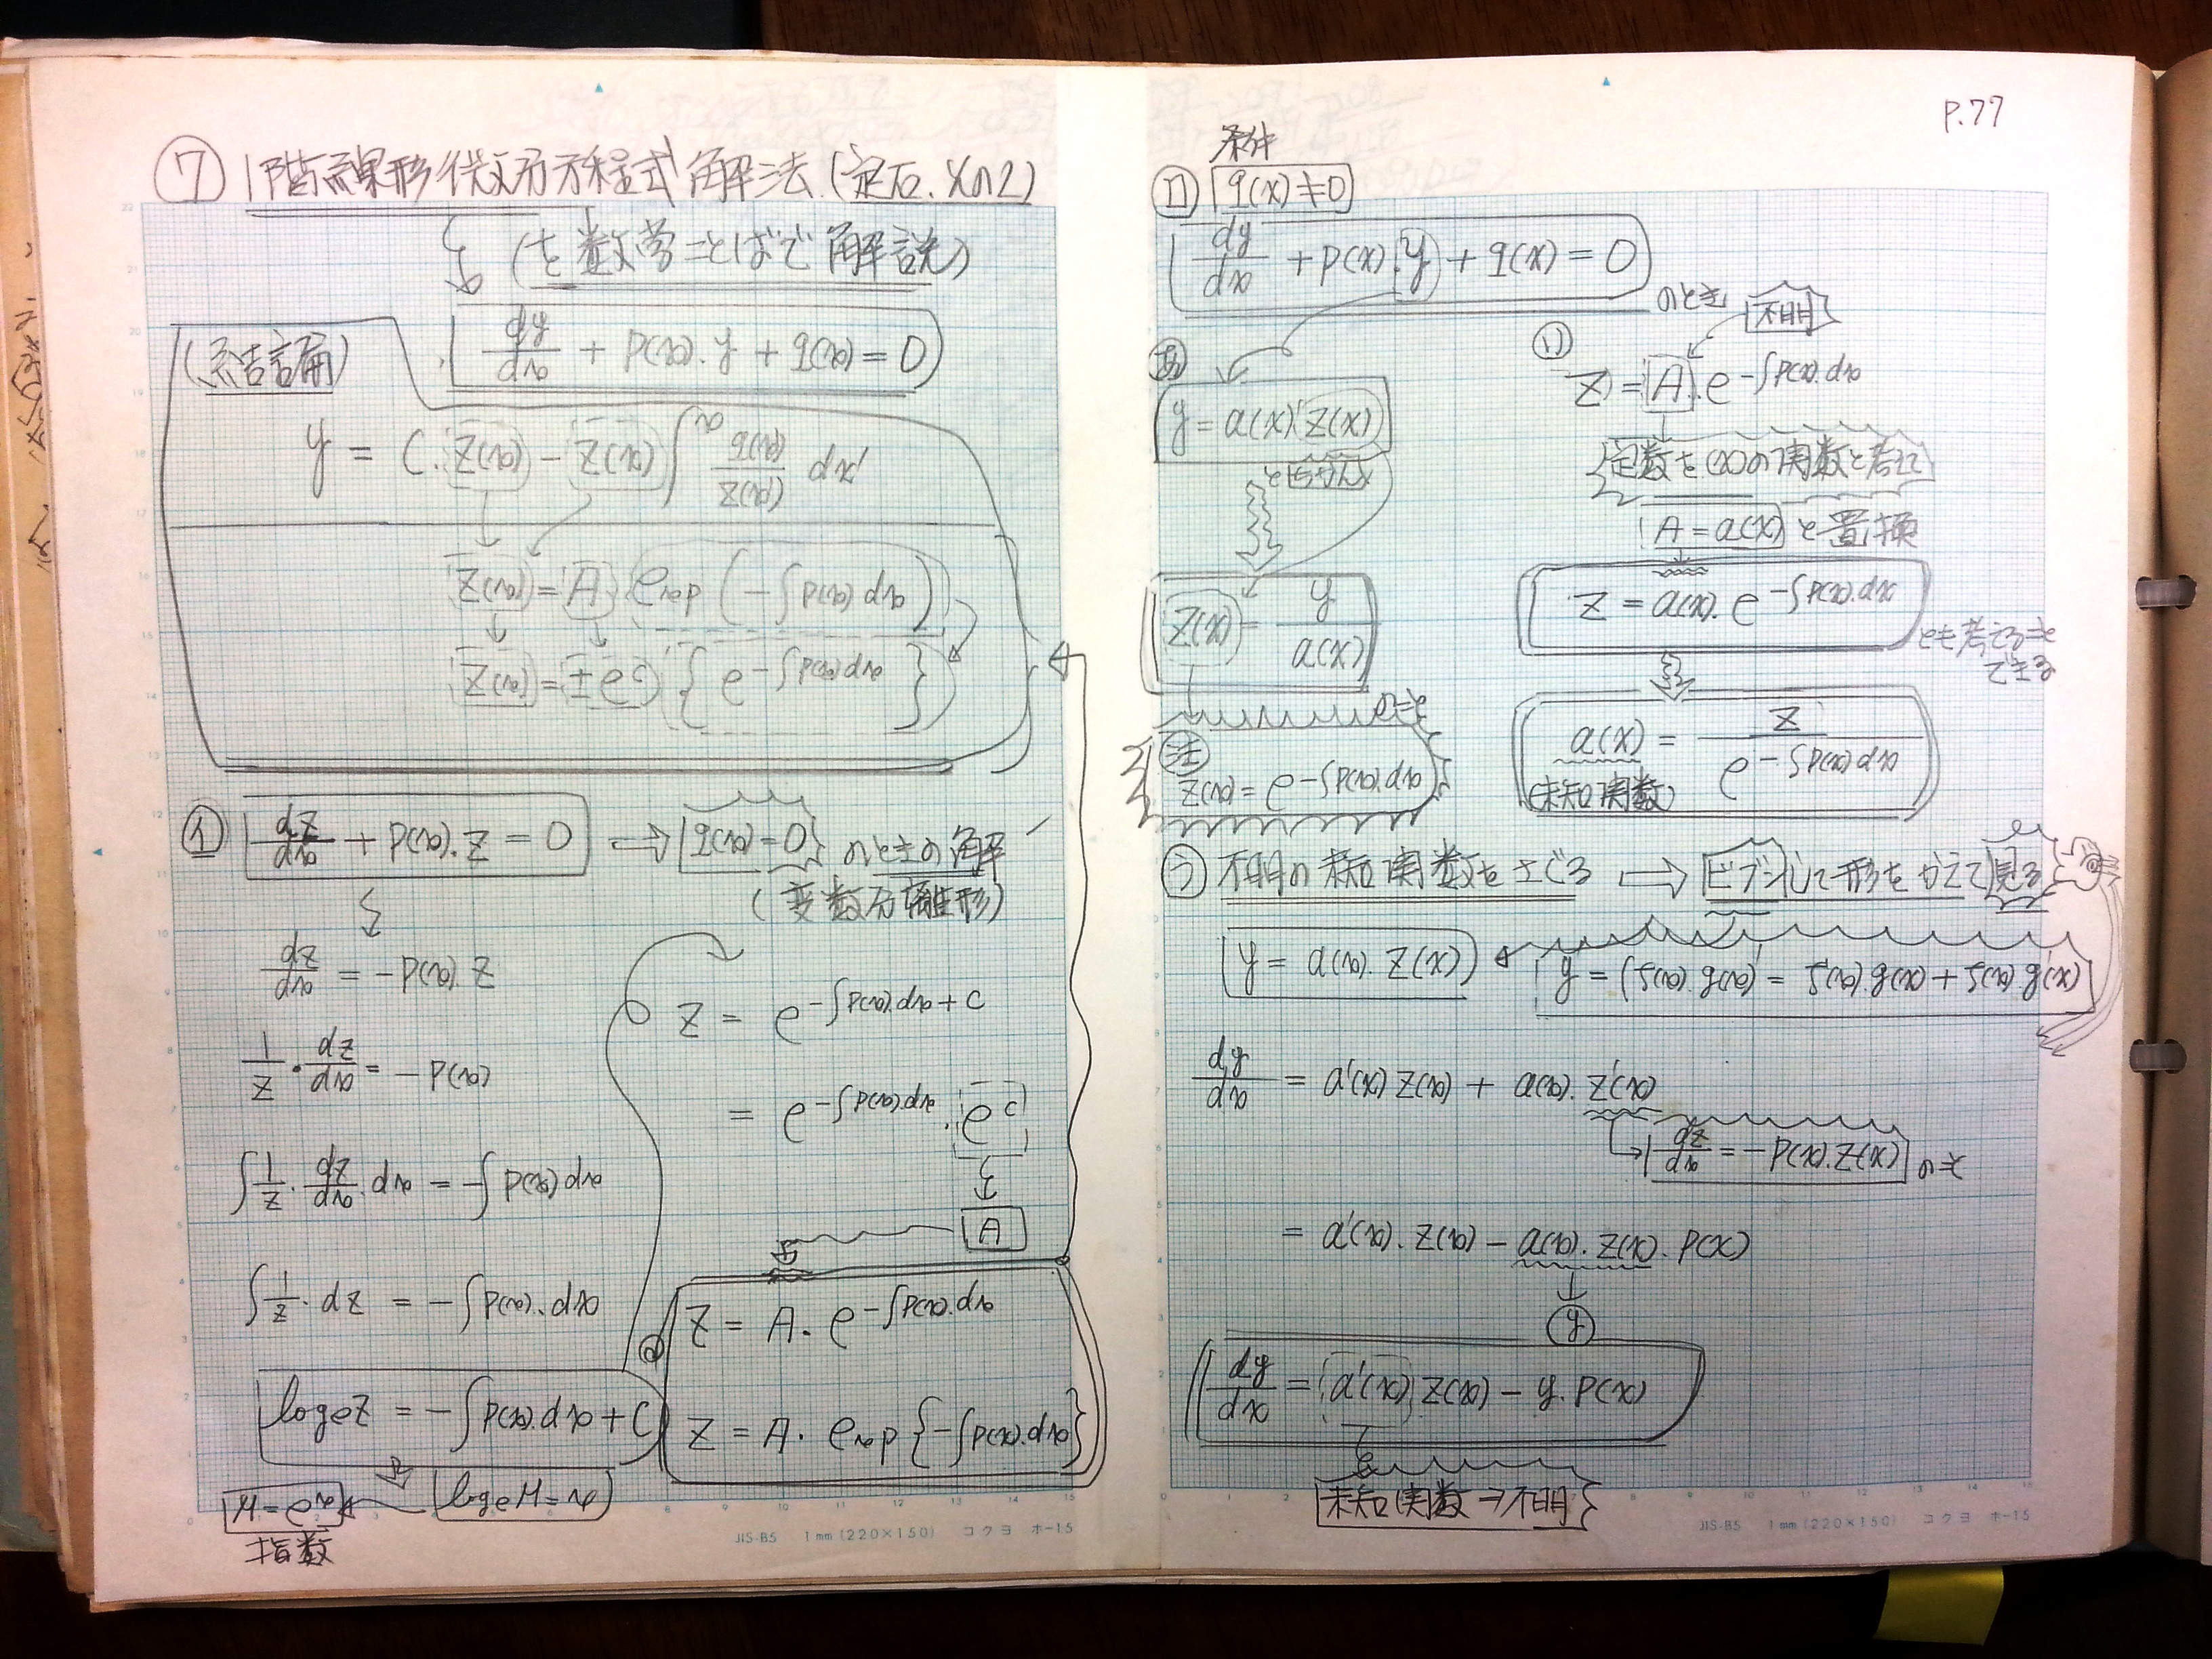 P.77
⑦ 1階線形微分方程式解法.(定石.その2)
(を数学ことばで解説)
dy/dx + P(x).y + q(x) = 0
(結言扁)
y = C.Z(x) - Z(x)∫^x q(x)/Z(x) dx'
Z(x) = A exp(-∫P(x)dx)
Z(x) = ±e^c {e^-∫P(x)dx}
イ dz/dx + P(x).Z = 0 → q(x)=0 のときの解
(変数分離形)
dz/dx = -P(x).Z
1/Z・dz/dx = -P(x)
∫1/Z・dz/dx・dx = -∫P(x)dx
∫1/Z・dZ = -∫P(x).dx
logeZ = -∫P(x).dx + C
M = e^x ← logeM = x
指数
Z = e^-∫P(x).dx+C
= e^-∫P(x).dx・e^c
A
Z = A・e^-∫P(x).dx
Z = A・exp{-∫P(x).dx}
JIS-B5 1mm (220×150) コクヨ ホ-15
条件
ロ q(x)≠0
dy/dx + P(x).y + q(x) = 0
のとき
あ
y = a(x) Z(x)
Z(x) = y/a(x)
注
Z(x) = e^-∫P(x).dx
い
不明
Z = A.e^-∫P(x).dx
定数を(x)の関数と考えて
A = a(x) と置換
Z = a(x).e^-∫P(x).dx
とも考えること
できる
a(x) = Z/e^-∫P(x)dx
(未知関数)
う 不明の未知関数をさぐる → ビブンして形をかえて見る
y = a(x).Z(x) ← y' = (f(x).g(x))' = f'(x).g(x) + f(x).g'(x)
dy/dx = a'(x)Z(x) + a(x).Z'(x)
dz/dx = -P(x).Z(x) のと
= a'(x).Z(x) - a(x).Z(x).P(x)
y
dy/dx = a'(x) Z(x) - y.P(x)
未知関数→不明
JIS-B5 1mm (220×150) コクヨ ホ-15